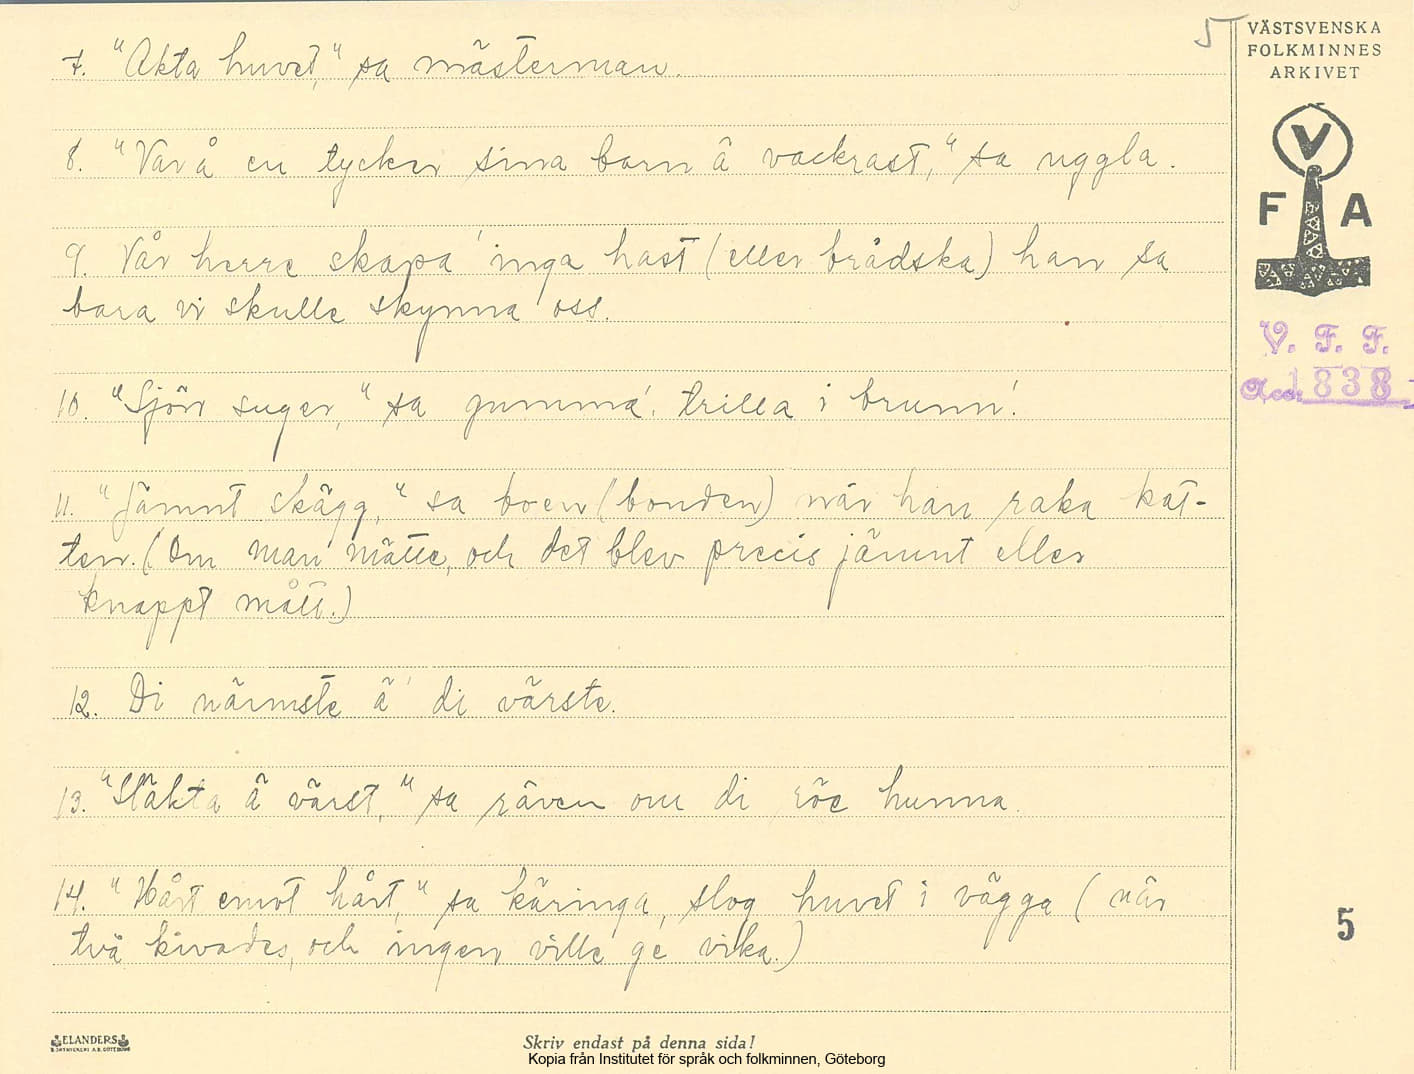 5
VÄSTSVENSKA
FOLKMINNES
ARKIVET
7. "Akta huvet," sa mästerman.
8. "Var å en tycker sina barn ä vackrast," sa uggla.
V
F A
9. Vår herre skapa' inga hast (eller brådska) han sa
bara vi skulle skynna oss.
V. F. F.
Acc. 1838
10. "Sjön suger," sa gumma', trilla i brunn'.
11. "Jämnt skägg," sa boen (bonden) när han raka kat-
ten. (Om man mätte, och det blev precis jämnt eller
knappt mått.)
12. Di närmste ä' di värste.
13. "Släkta ä värst," sa räven om di röe hunna.
14. "Hårt emot hårt," sa käringa, slog huvet i vägga (när
två kivades, och ingen ville ge vika.)
5
ELANDERS
Skriv endast på denna sida!
Kopia från Institutet för språk och folkminnen, Göteborg